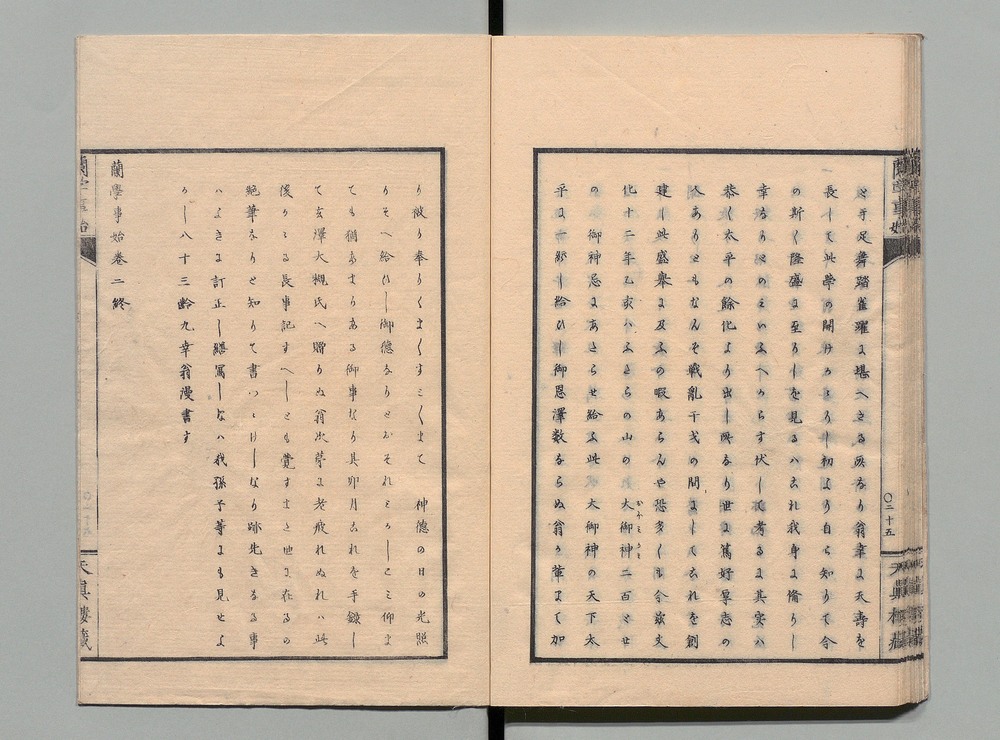 と手足舞踏雀躍に堪へさる所なり翁幸に天壽を
長して此學の開けかゝりし初より自ら知りて今
の斯く隆盛に至りしを見るハこれ我身に備りし
幸なりとのミいふへからす伏して考るに其実ハ
恭く太平の餘化より出し所なり世に篤好厚志の
人ありともなんそ戰亂干戈の間にしてこれを創
建し此盛舉に及ふの暇あらんや恐多くも今茲文
化十二年乙亥ハふたらの山の大御神二百とせ
の御神忌にあたらせ給ふ此大御神の天下太
平に一統し給ひし御恩澤数ならぬ翁か輩まて加
り被り奉りくまくすミくまて神德の日の光照
りそへ給ひし御德なりとおそれミかしこミ仰き
ても猶あまりある御事なり其卯月これを手録し
て玄澤大槻氏へ贈りぬ翁次第に老疲れぬれハ此
後かゝる長事記すへしとも覺すまた世に在るの
絶筆なりと知りて書つゝけしなり跡先きなる事
ハよきに訂正し繕寫しなハ我孫子等にも見せよ
かし八十三齢九幸翁漫書す
蘭學事始卷二終
蘭學事始
〇二十五
天眞樓藏